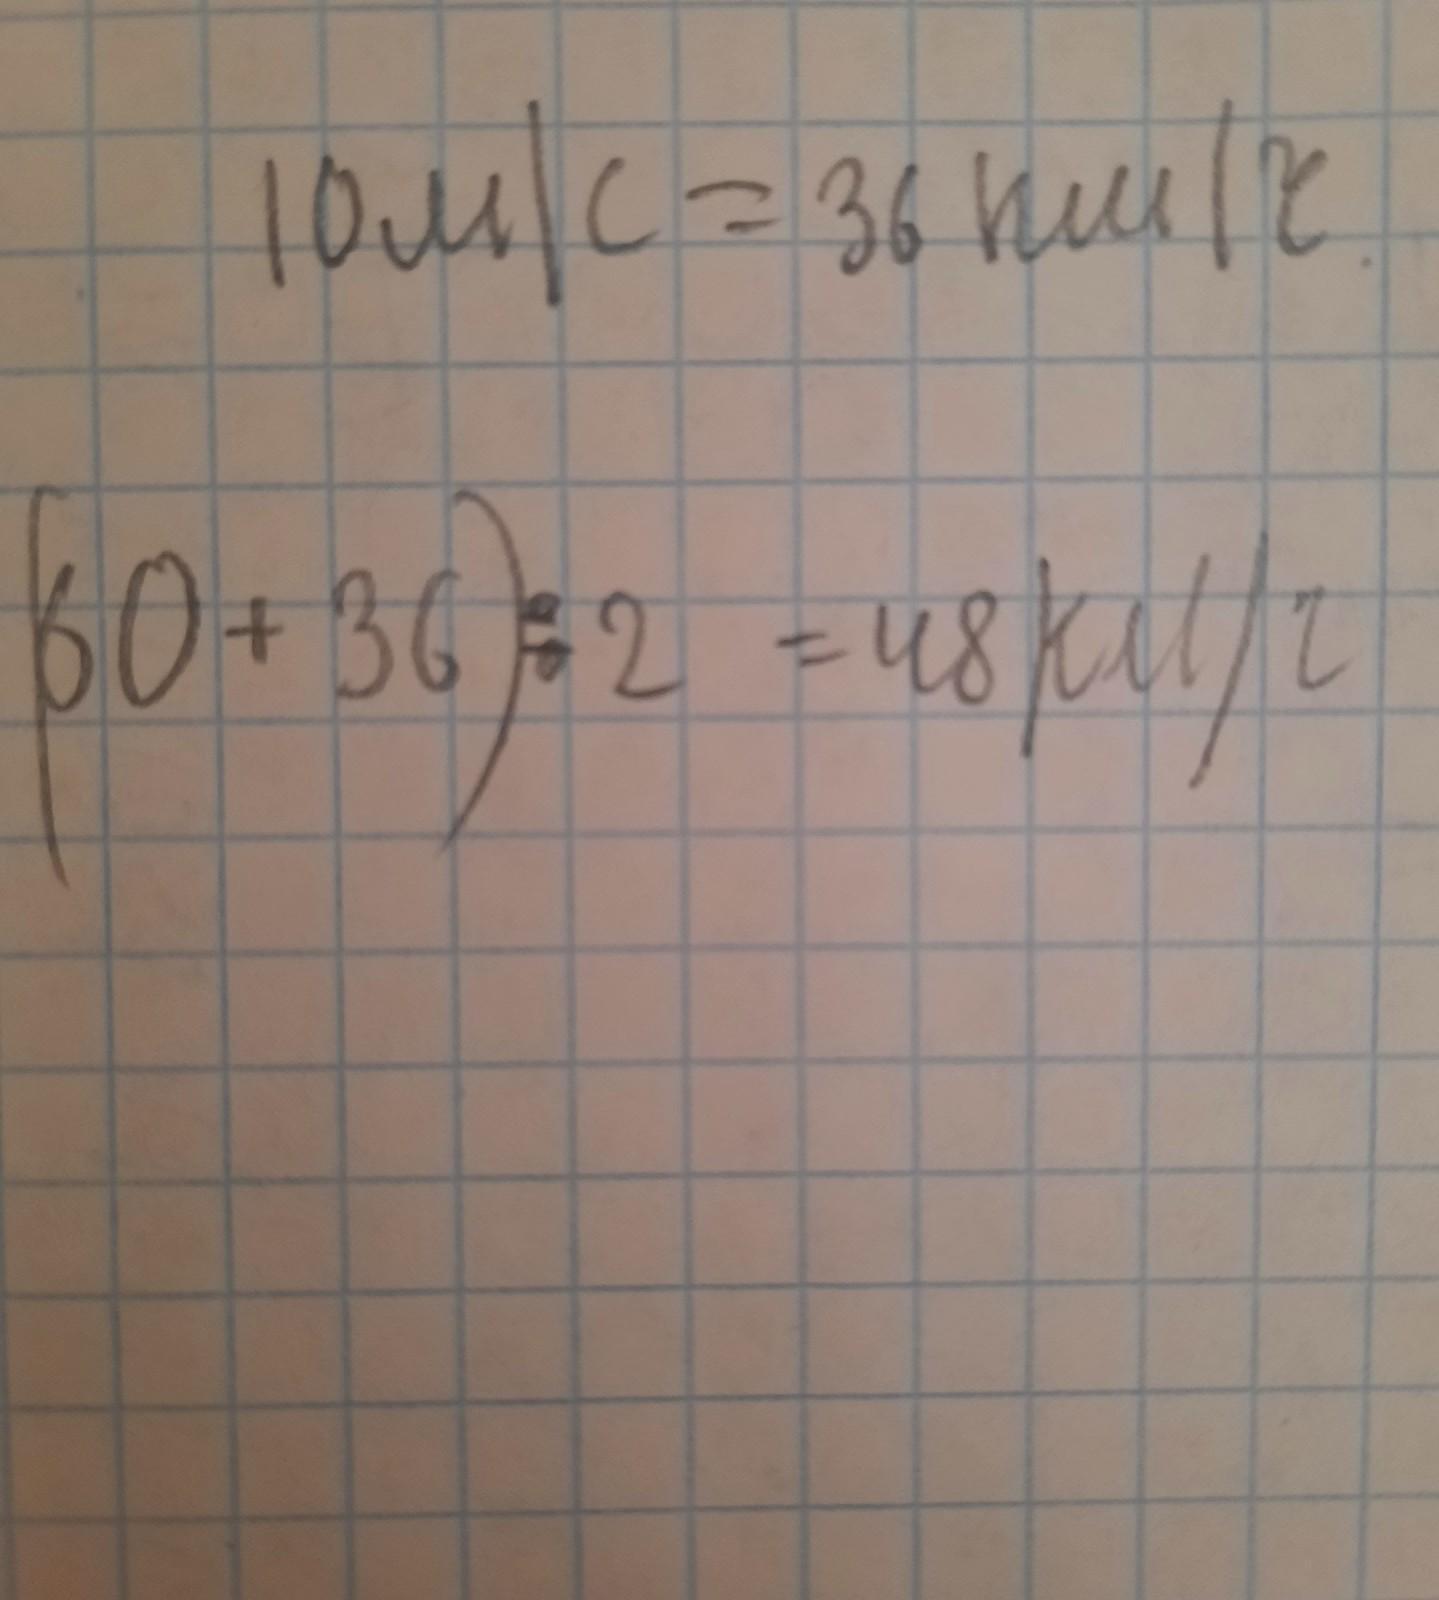 10м/с = 36 км/ч.
(60 + 36) : 2 = 48 км/ч